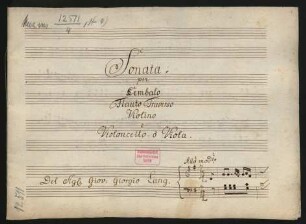 Mus. ms. 12571
4
Sonata.
per
Cembalo
Flauto Traverso
Violino
e
Violoncello. ò Viola.
All.º mod.to
Del Sig.r Giov. Giorgio Lang.